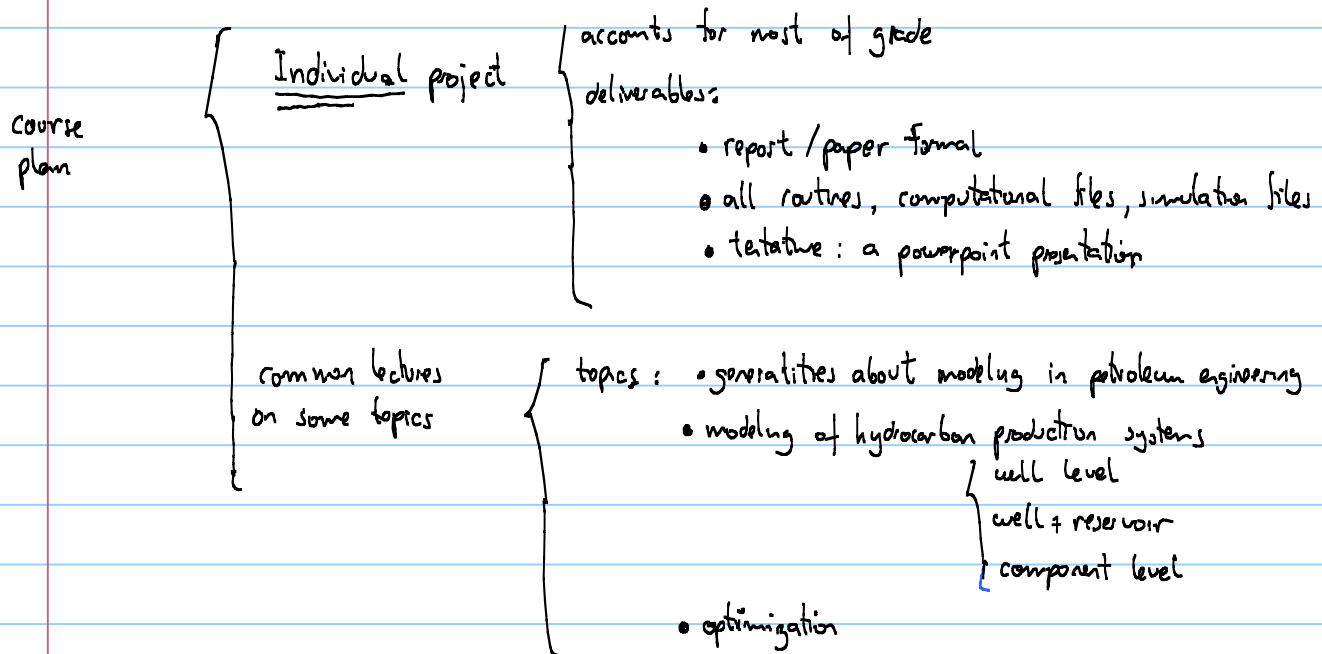 course
plan
Individual project
accounts for most of grade
deliverables:
• report / paper formal
• all routines, computational files, simulation files
• tentative : a powerpoint presentation
common lectures
on some topics
topics : • generalities about modeling in petroleum engineering
• modeling of hydrocarbon production systems
well level
well + reservoir
component level
• optimization